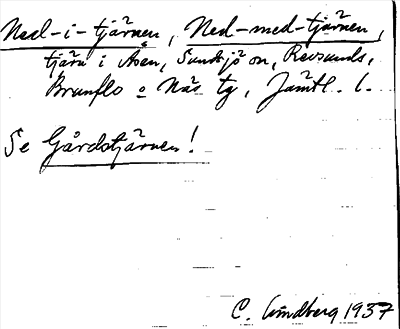 Ned-i-tjärnen, Ned-med-tjärnen,
tjärn i Åsen, Sundsjö sn, Revsunds,
Brunflo o Näs tg, Jämtl. l.
Se Gårdstjärnen!
C. Lindberg 1937